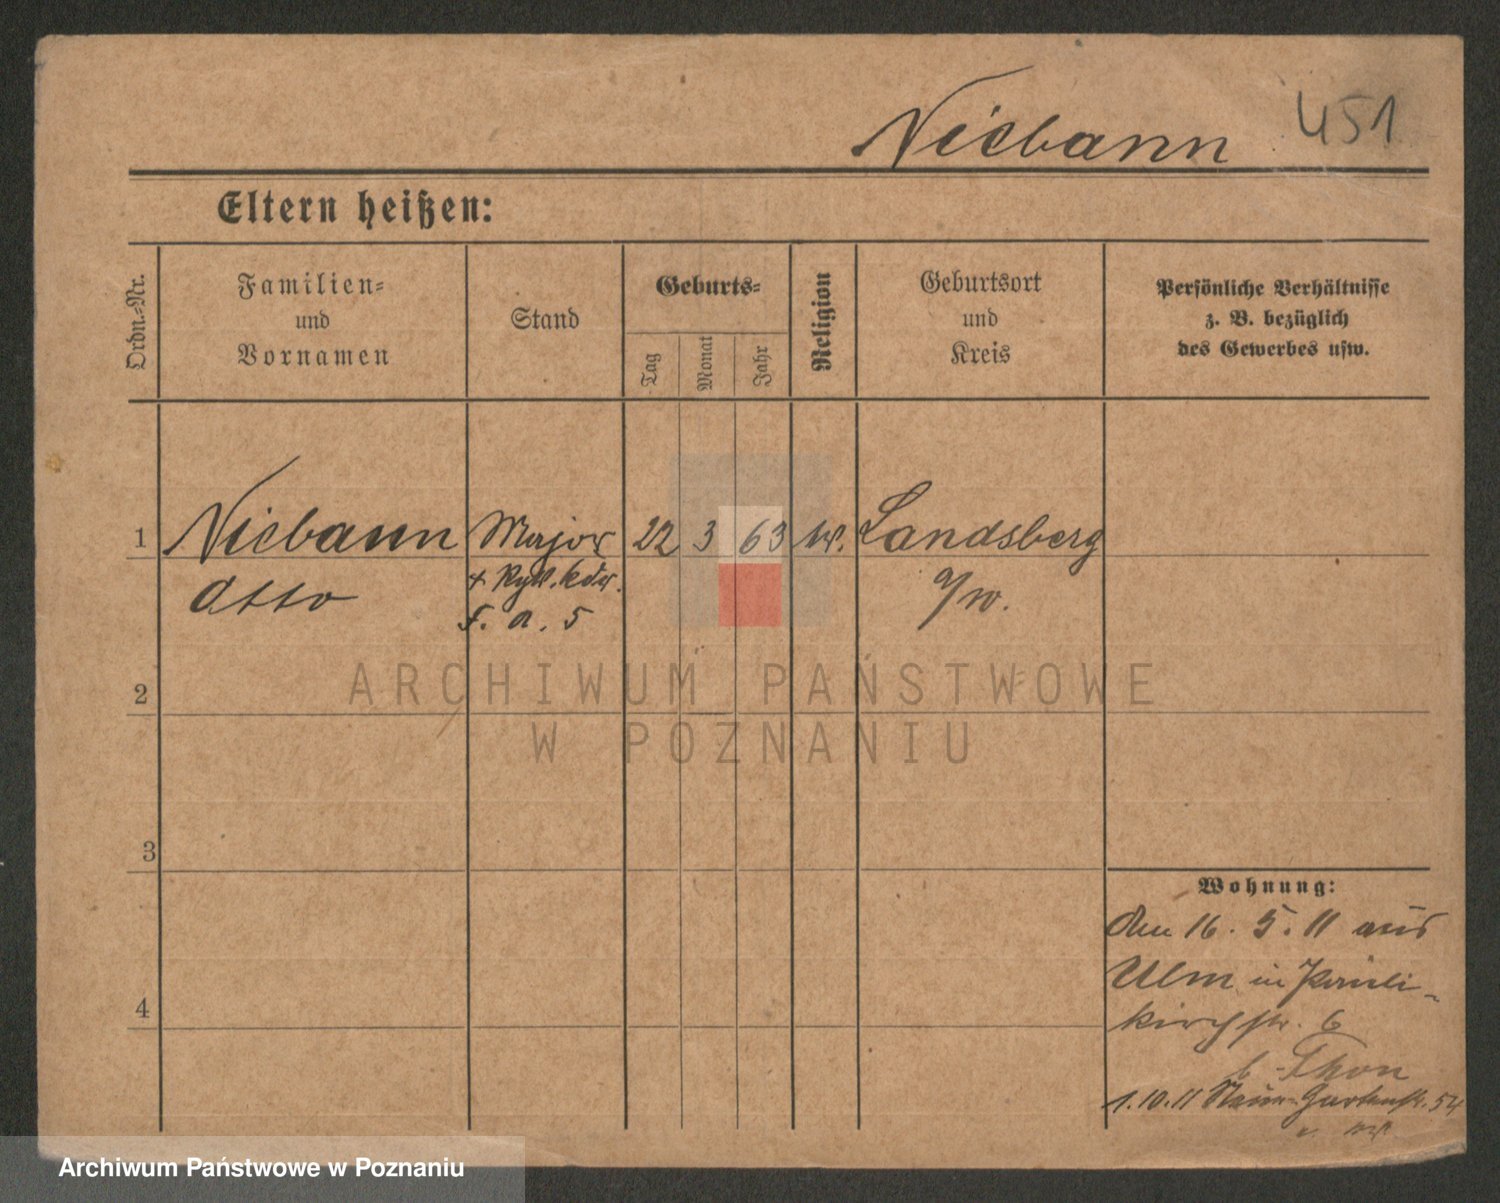 Niebann 451
Eltern heißen:
Ordn.-Nr.
Familien-
und
Vornamen
Stand
Geburts-
Tag
Monat
Jahr
Religion
Geburtsort
und
Kreis
Persönliche Verhältnisse
z. B. bezüglich
des Gewerbes usw.
1 Niebann Major 22 3 63 Landsberg
Otto
a/w.
F. a. 5
2
3
4
Wohnung:
den 16. 5. 11 aus
Ulm in Pauli-
kirchstr. 6
b. Thon
1.10.11 Gartenstr. 54
ARCHIWUM PAŃSTWOWE
W POZNANIU
Archiwum Państwowe w Poznaniu